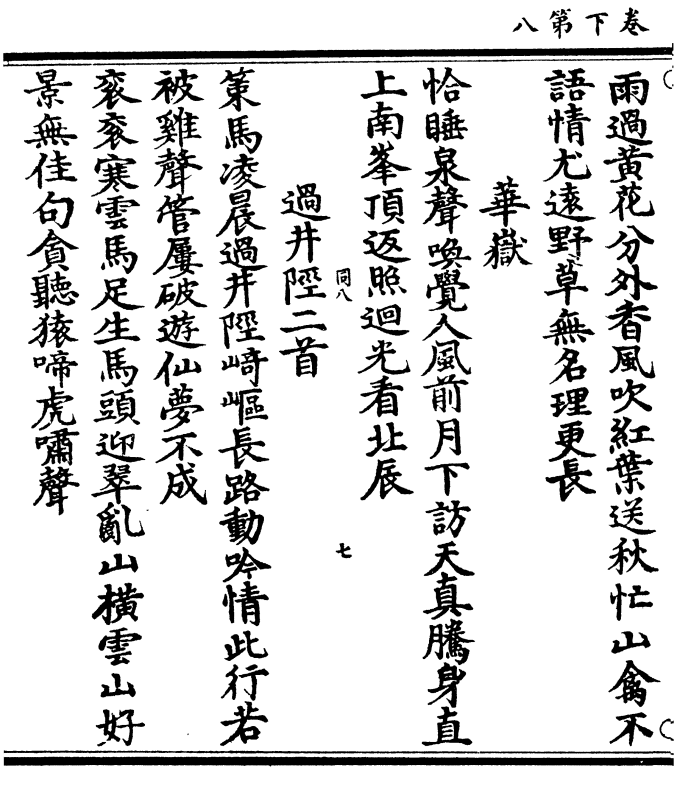 卷下第八
雨過黃花分外香風吹紅葉送秋忙山禽不
語情尤遠野草無名理更長
華嶽
恰睡泉聲喚覺人風前月下訪天真騰身直
上南峯頂返照迴光看北辰
同八
七
過井陘二首
策馬凌晨過井陘﨑嶇長路動吟情此行若
被雞聲管屢破遊仙夢不成
衮衮寒雲馬足生馬頭迎翠亂山橫雲山好
景無佳句貪聽猿啼虎嘯聲